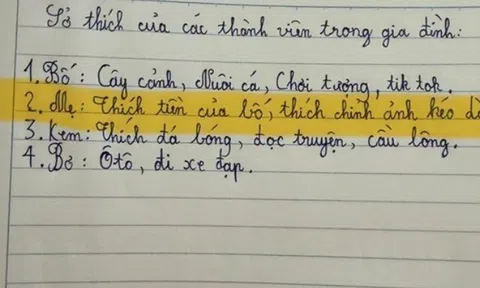 Sở thích của các thành viên trong gia đình:
1. Bố: Cây cảnh, Nuôi cá, Chơi tượng, tik tok.
2. Mẹ: Thích tiền của bố, thích chỉnh ảnh kéo
3. Kem: Thích đá bóng, đọc truyện, cầu lông.
4. Bơ: Ôtô, đi xe đạp.